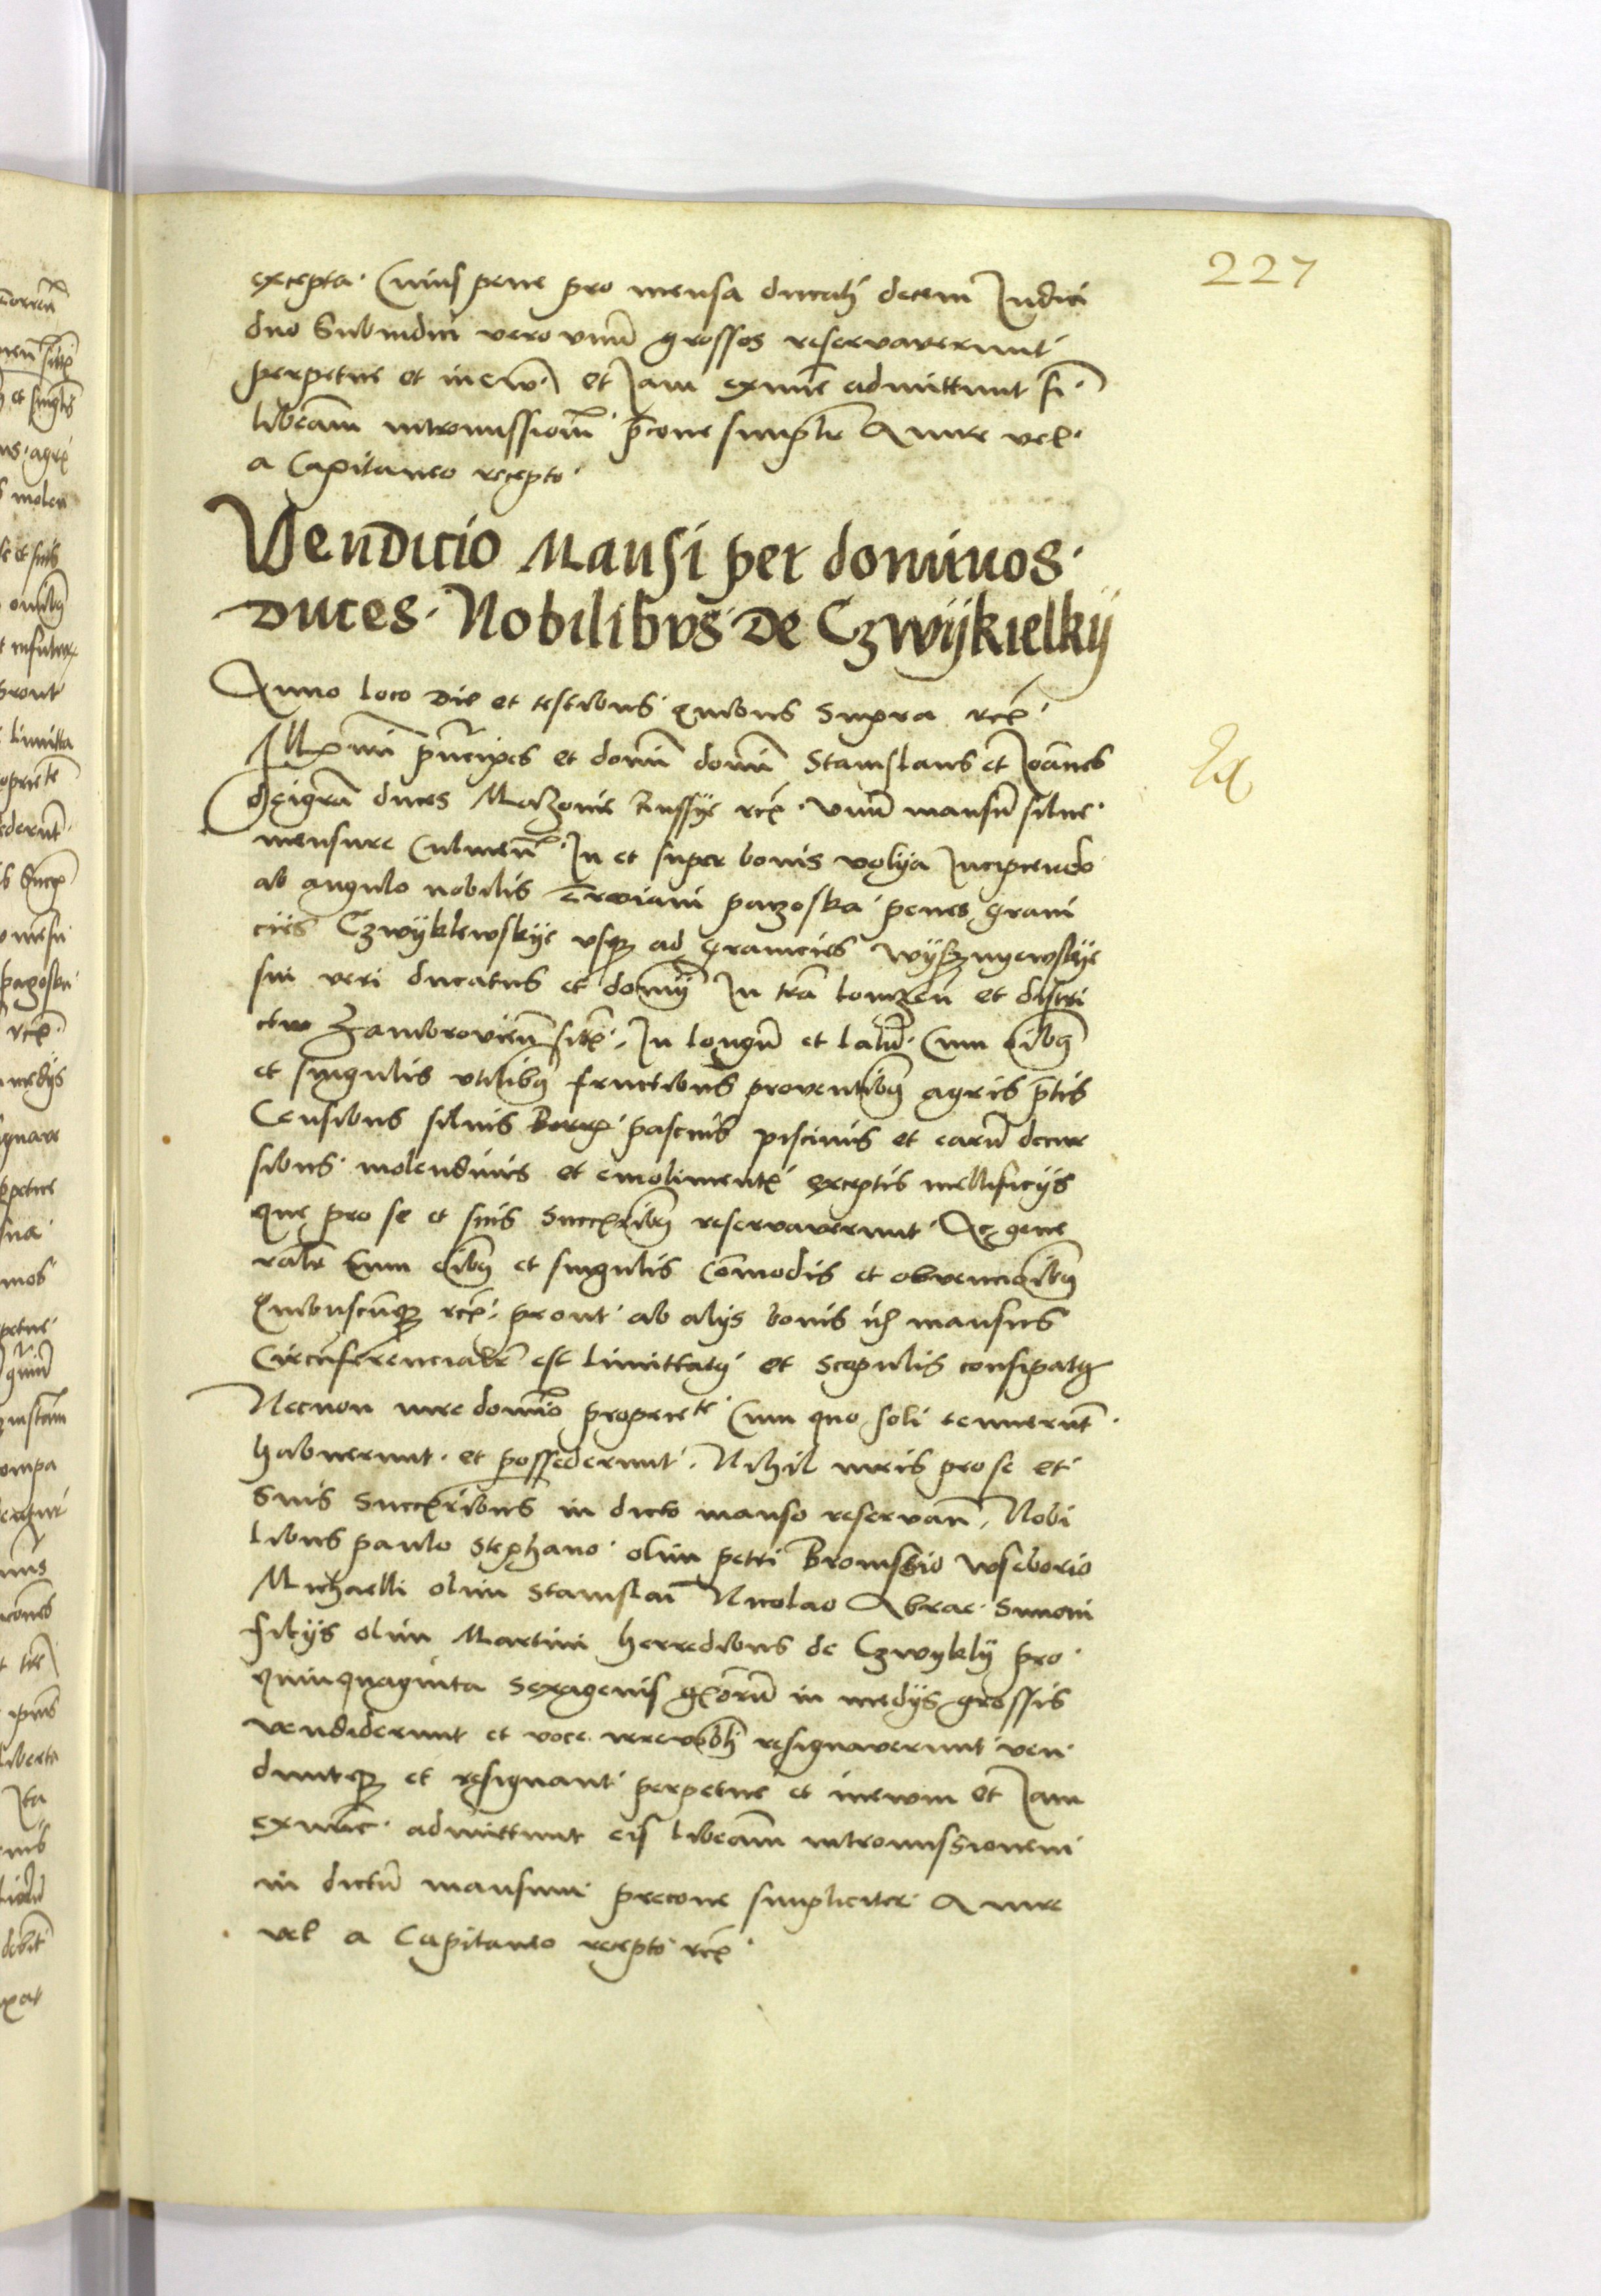 227
excepta. Cuius pene pro mensa ducali decem Iudici
duo Subiudici vero vnũ grossos reservaverunt
perpetue et inewũ et Iam exnũc admittunt s̃
liberam intromissionẽ p̃cone simplr̃ A iure vel
a Capitaneo recepto.
Vendicio Mansi per dominos
duces. Nobilibvs De Czwykielky
Anno loco die et testibus quibus supra rc̃
Illr̃mi prĩcipes et domĩ domĩ Stanislaus et Ioãnes
deigrã duces Mazovie Russye rc̃. vnũ mansũ silve
mensure Culmeñ. In et super bonis volya Incipiendo
ab angulo nobilis paczoska penes grani
cies Czwyklewskye vsq₃ ad granicies
sui veri ducatus et domĩ In trã lomzeñ et distri
ctu Zambrovieñ sitẽ. In longũ et latũ. Cum oĩbq
et singulis vtilibq fructibus proventibq agris p̃tis
Censibus silvis pascuis piscinis et earũ decur
sibus molendinis et emolimentis exceptis mellificiis
que pro se et suis succr̃ibq reservaverunt. Ac gene
ralr̃ Cum oĩbq et singulis cõmodis et obvencõibq
Quibuscũq₃ rc̃. prout ab alys bonis mansus
Circũferencialr̃ est limittatq et scopulis consipatq
Necnon iure domĩo propriete Cum quo soli tenuerũt
habuerunt. et possederunt. Nihil iuris pro se et
Suis Succr̃ibus in dicto manso reservañ. Nobi
libus paulo Stephano olim petri Bronissio wseborio
Michaelli olim Stanislai Nicolao Abrae Simoni
filys olim Martini herredibus de Czwykly pro
Quinquaginta Sexagenis grõrũ in medys grossis
vendiderunt et voce irrevobĩ resignaverunt ven
duntq₃ et resignant perpetue et inewum et Iam
exnũc admittunt eis liberam intromissionem
in dictũ mansum precone simpliciter A iure
vel a Capitaneo recepto rc̃.